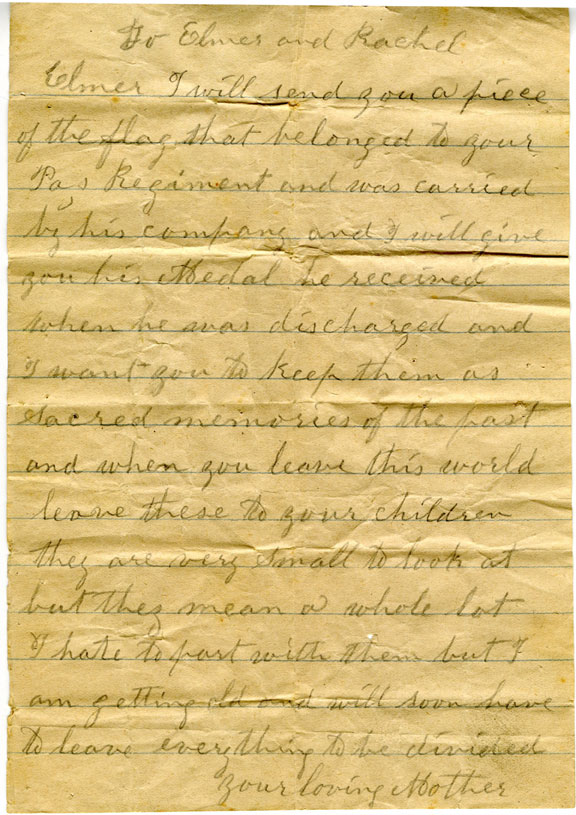 To Elmer and Rachel
Elmer I will send you a piece
of the flag that belonged to your
Pa's Regiment and was carried
by his company and I will give
you his Medal he received
when he was discharged and
I want you to keep them as
sacred memories of the past
and when you leave this world
leave these to your children
they are very small to look at
but they mean a whole lot
I hate to part with them but I
am getting old and will soon have
to leave everything to be divided
your loving Mother